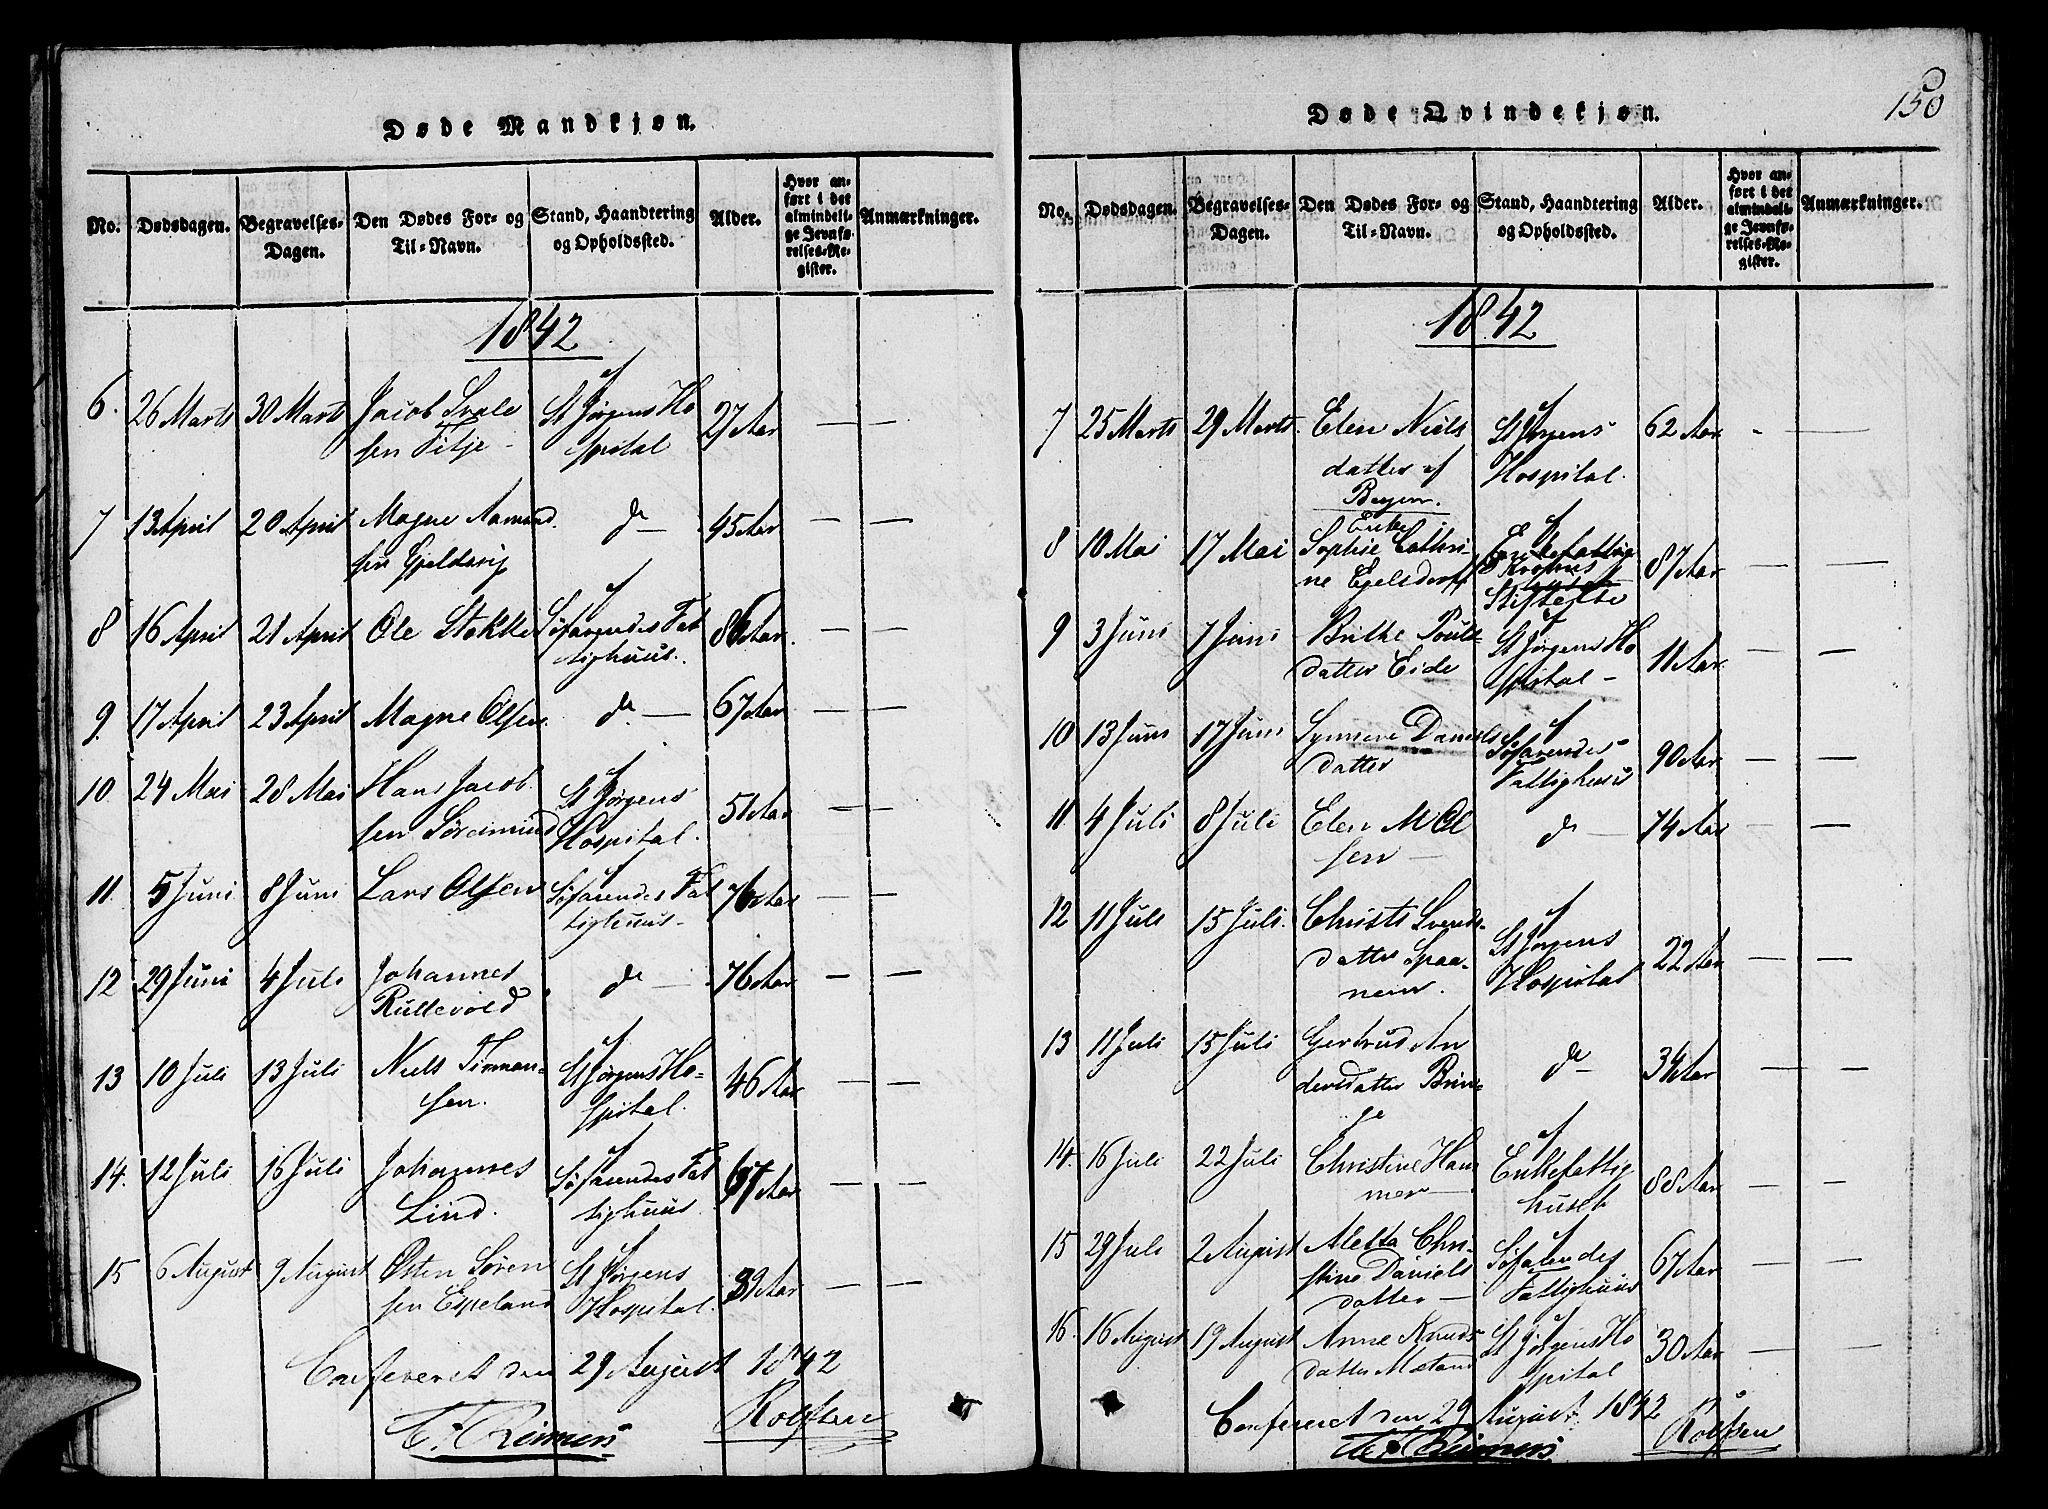 Døde Mandkjøn.
No.
Dødsdagen.
Begravelses-
Dagen.
Den Dødes For- og
Til-Navn.
Stand, Haandtering
og Opholdssted.
Alder.
Hvor an-
ført i det
almindeli-
ge Jevnfø-
relses-Re-
gister.
Anmærkninger.
1842
6. 26 Marts 30 Marts Jacob
sen St Jørgens Ho
spital 27 Aar — —
7 13 April 20 April Magne Aamund
sen do — 45 Aar — —
8 16 April 21 April Ole Stokke Søfarendes Fat
tighuus. Aar — —
9. 17 April 23 April Magne Olsen do — 67 Aar — —
10 24 Mai 28 Mai Hans Jacob
sen St Jørgens
Hospital. 51 Aar — —
11 5 Juni 8 Juni Lars Olsen Søfarendes Fat
tighuus- 76 Aar — —
12 29 Juni 4 Juli Johannes
Rullevold do — 76 Aar — —
13 10 Juli 13 Juli Niels
sen. St Jørgens Ho-
spital. 46 Aar — —
14. 12 Juli 16 Juli Johannes
Lind. Søfarendes Fat
tighuus Aar — —
15 6 August 9 August Østen Søren
sen Espeland St Jørgens
Hospital. 39 Aar — —
Confereret den 29 August 1842
Rolfsen
Døde Qvindekjøn.
150
No.
Dødsdagen.
Begravelses-
Dagen.
Den Dødes For- og
Til-Navn.
Stand, Haandtering
og Opholdssted.
Alder.
Hvor an-
ført i det
almindeli-
ge Jevnfø-
relses-Re-
gister.
Anmærkninger.
1842
7 25 Marts 29 Marts Elen Niels
datter af
Bergen. St Jørgens
Hospital. 62 Aar - —
8 10 Mai 17 Mai Enke
Sophie Cathri-
ne Egelsdorff
Stiftelse 87 Aar — —
9 3 Juni 7 Juni Brithe Pouls
datter Eide St Jørgens Ho
spital - 11 Aar — —
10 13 Juni 17 Juni Synneve Daniels
datter Søfarendes
Fattighuus 90 Aar — —
11 4 Juli 8 Juli Elen M Ol
sen — do — 74 Aar — —
12 11 Juli 15 Juli. Christi Svends-
datter Spaa-
nem. St Jørgens
Hospital 22 Aar — —
13 11 Juli 15 Juli Gertrud An
dersdatter Brin-
ge do — 34 Aar — —
14. 16 Juli 22 Juli Christine Ham
mer — Enkefattig
huset 88 Aar — —
15 29 Juli 2 August Aletta Chri-
stine Daniels
datter — Søfarendes
Fattighuus 67 Aar — —
16. 16 August 19 August Anne Knuds
datter St Jørgens Ho
spital 30 Aar — —
Confereret den 29 August 1842
Rolfsen